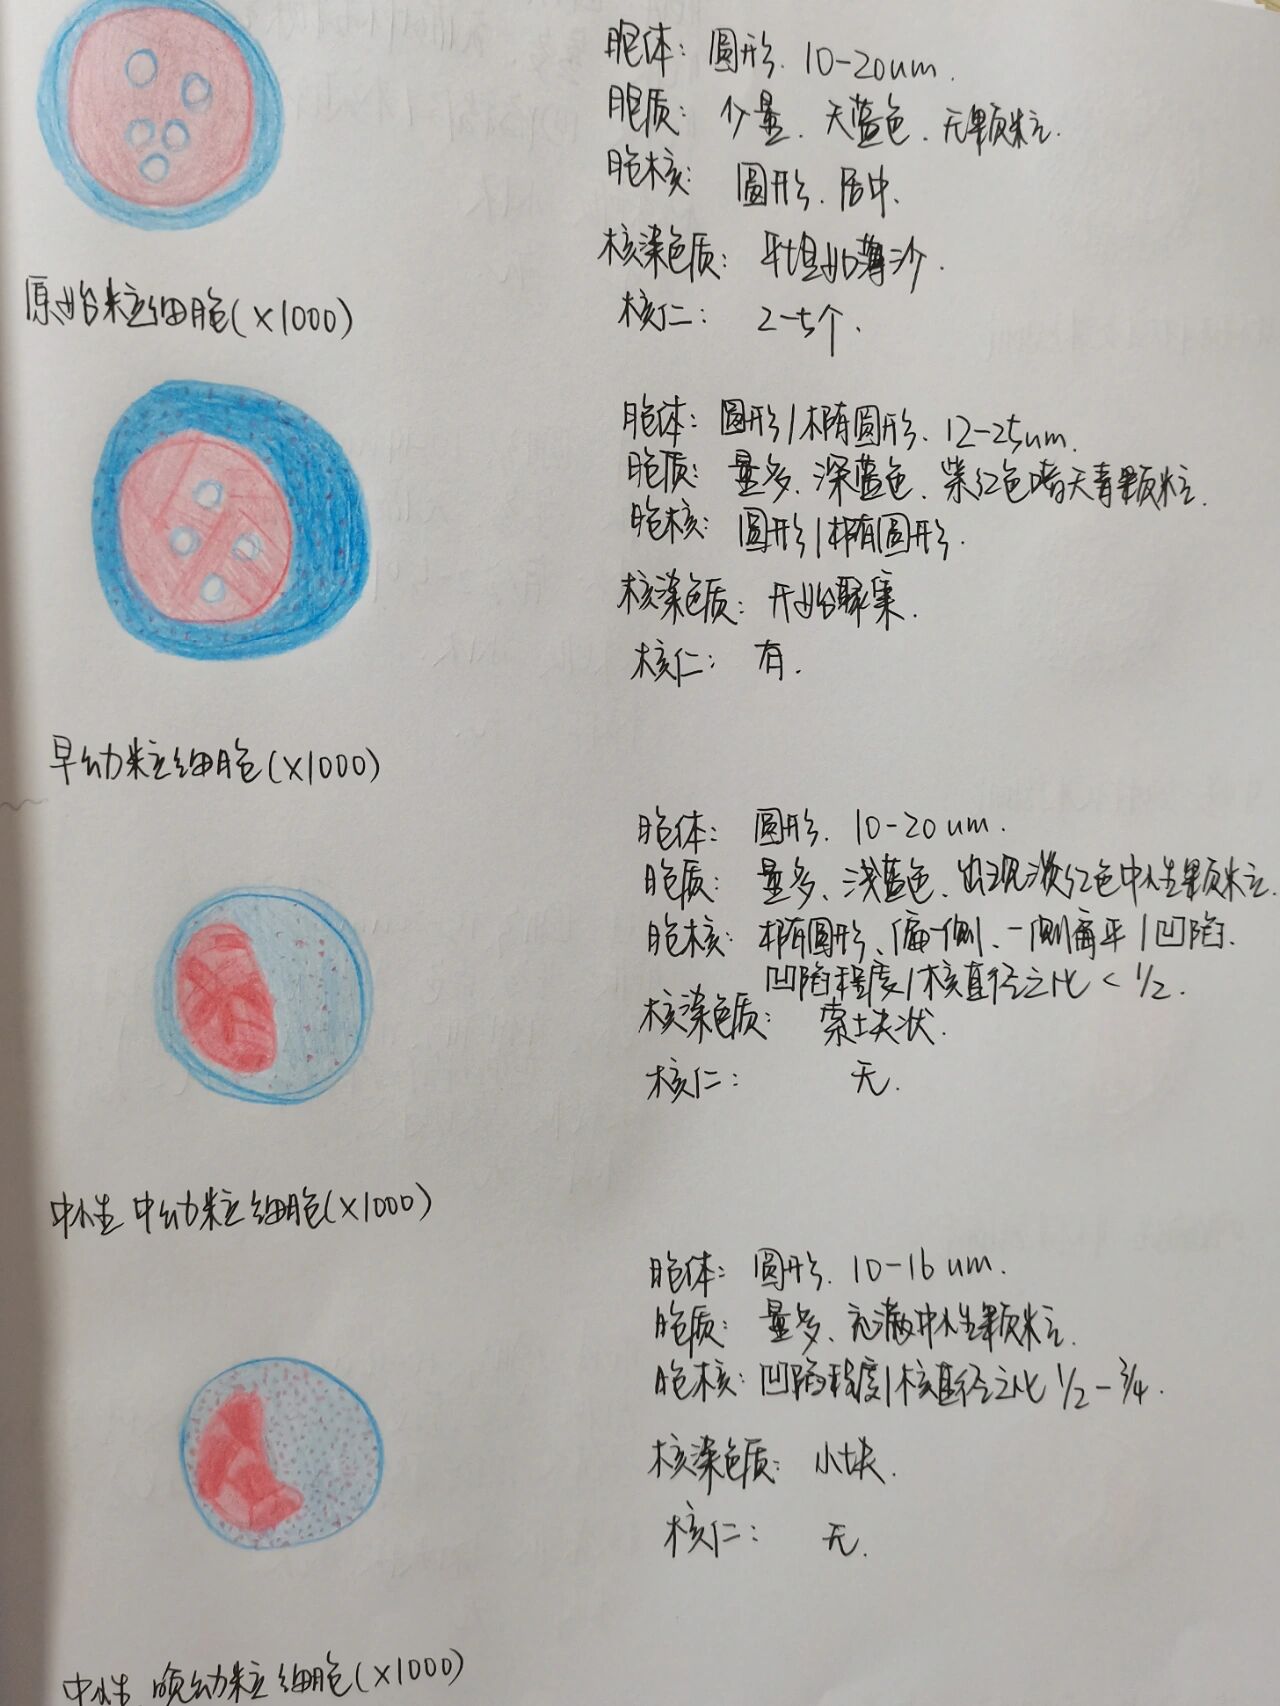 胞体: 圆形、10-20um.
胞质: 少量、天蓝色、无颗粒.
胞核: 圆形、居中.
核染色质: 平坦如薄沙.
核仁: 2-5个.
原始粒细胞(×1000)
胞体: 圆形/椭圆形、12-25um.
胞质: 量多、深蓝色、紫红色嗜天青颗粒.
胞核: 圆形/椭圆形.
核染色质: 开始聚集.
核仁: 有.
早幼粒细胞(×1000)
胞体: 圆形、10-20um.
胞质: 量多、浅蓝色、出现淡红色中性颗粒.
胞核: 椭圆形、偏一侧、一侧扁平/凹陷.
凹陷程度/核直径之比<1/2.
核染色质: 索块状.
核仁: 无.
中性中幼粒细胞(×1000)
胞体: 圆形、10-16um.
胞质: 量多、充满中性颗粒.
胞核: 凹陷程度/核直径之比 1/2-3/4.
核染色质: 小块.
核仁: 无.
中性晚幼粒细胞(×1000)